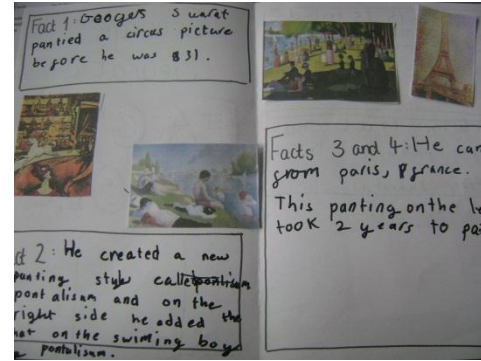 Fact 1: Googes Suarat
pantied a circus picture
before he was 31.
ct 2: He created a new
panting style called
pontalisam and on the
right side he added the
hat on the swiming boy
pontulisum.
Facts 3 and 4: He cam
from paris, france.
This panting on the le
took 2 years to pa